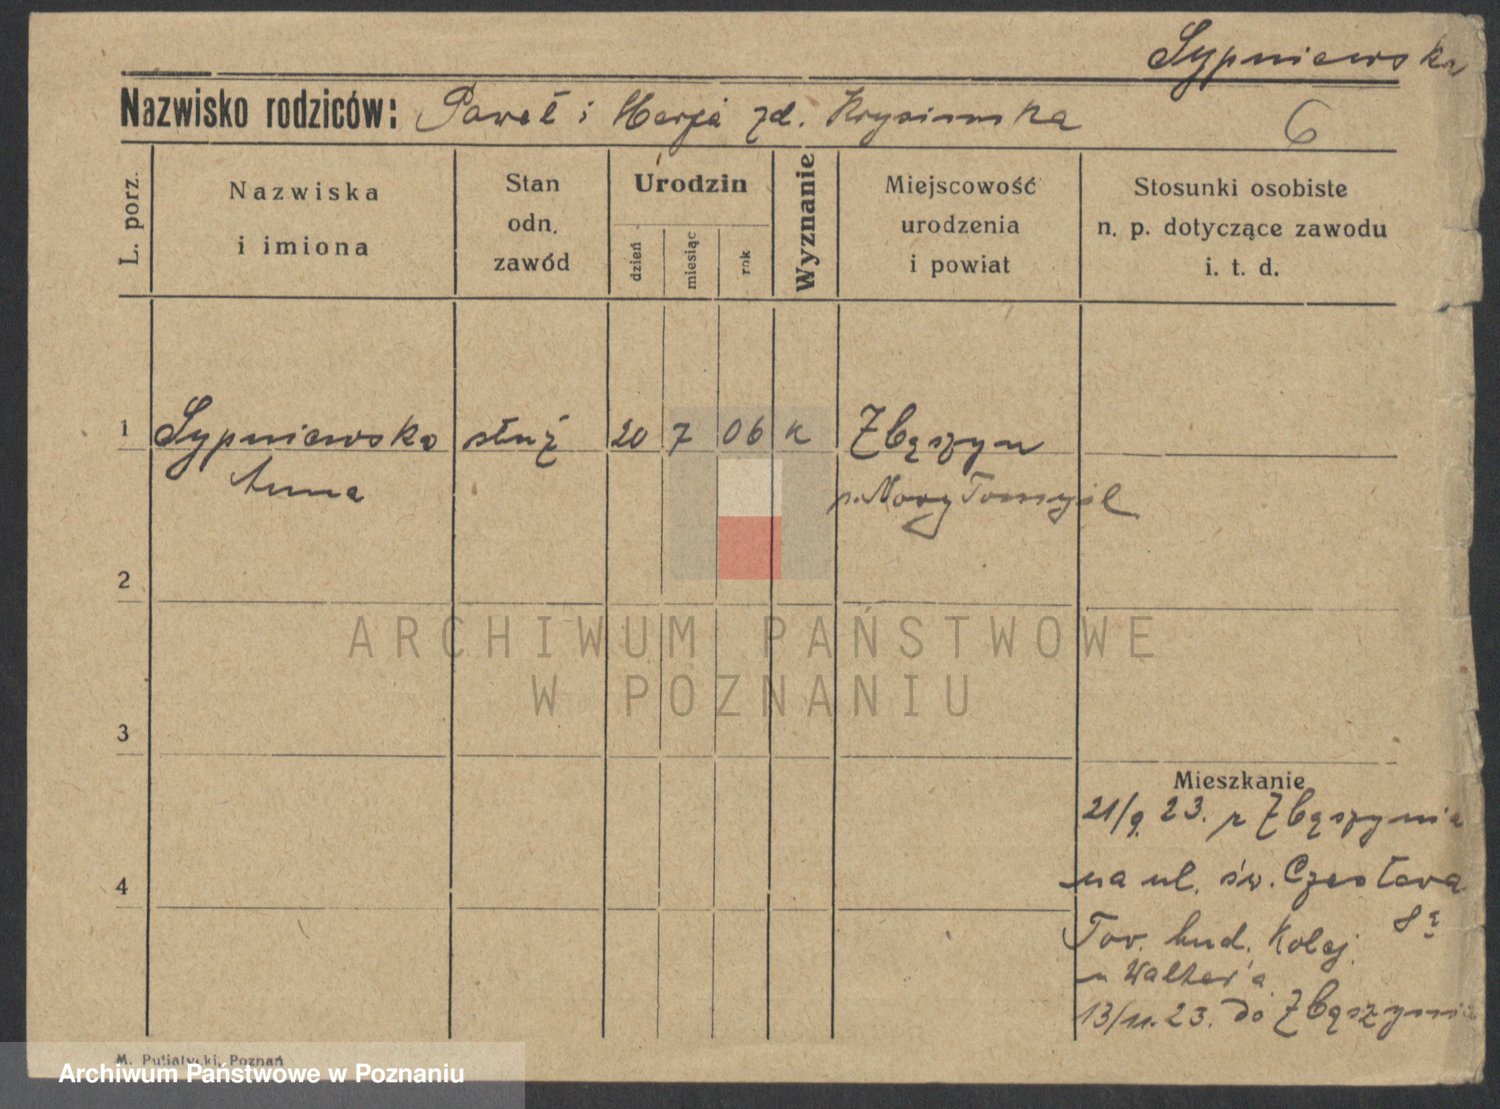 Sypniewska
Nazwisko rodziców: Paweł i Marja zd. 6
L. porz.
Nazwiska
i imiona
Stan
odn.
zawód
Urodzin
dzień
miesiąc
rok
Wyznanie
Miejscowość
urodzenia
i powiat
Stosunki osobiste
n. p. dotyczące zawodu
i. t. d.
1 Sypniewska służ 20 7 06 k Zbąszyn
Anna p. Nowy Tomyśl
2
ARCHIWUM PAŃSTWOWE
W POZNANIU
3
Mieszkanie
21/9. 23. z Zbąszynia
4 na ul. św. Czesława
8
Tow. bud. Kolej.
u Walter'a
13/11. 23. do Zbąszynia
M. Putiatycki, Poznań
Archiwum Państwowe w Poznaniu